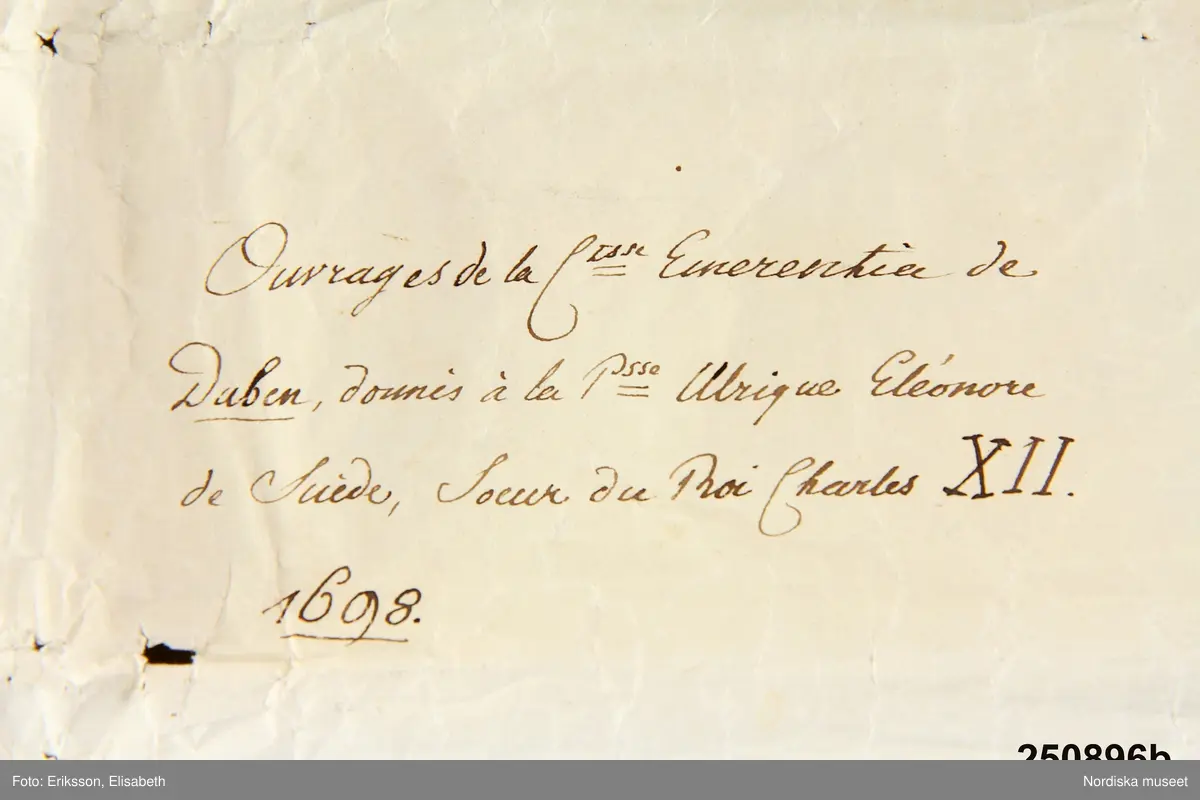 Ouvrages de la Ctsse Emerentia de
Duben, donnés à la Psse Ulrique Eléonore
de Suède, Soeur du Roi Charles XII.
1698.
250896b
Foto: Eriksson, Elisabeth
Nordiska museet